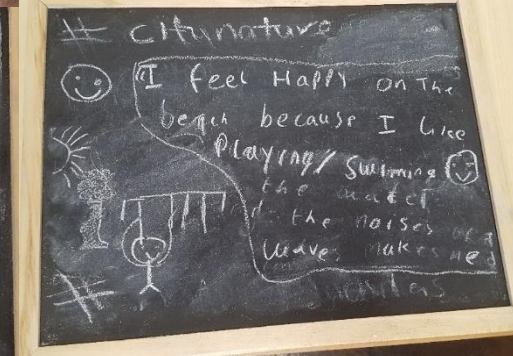 # citynature
I feel Happy on The
beach because I like
Playing/ swimming
the water
the noises
waves makes me